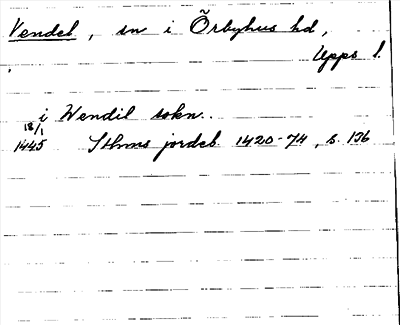 Vendel, sn i Örbyhus hd,
Upps l.
i Wendil sokn..
18/1
1445 Sthms jordeb. 1420-74, s. 136